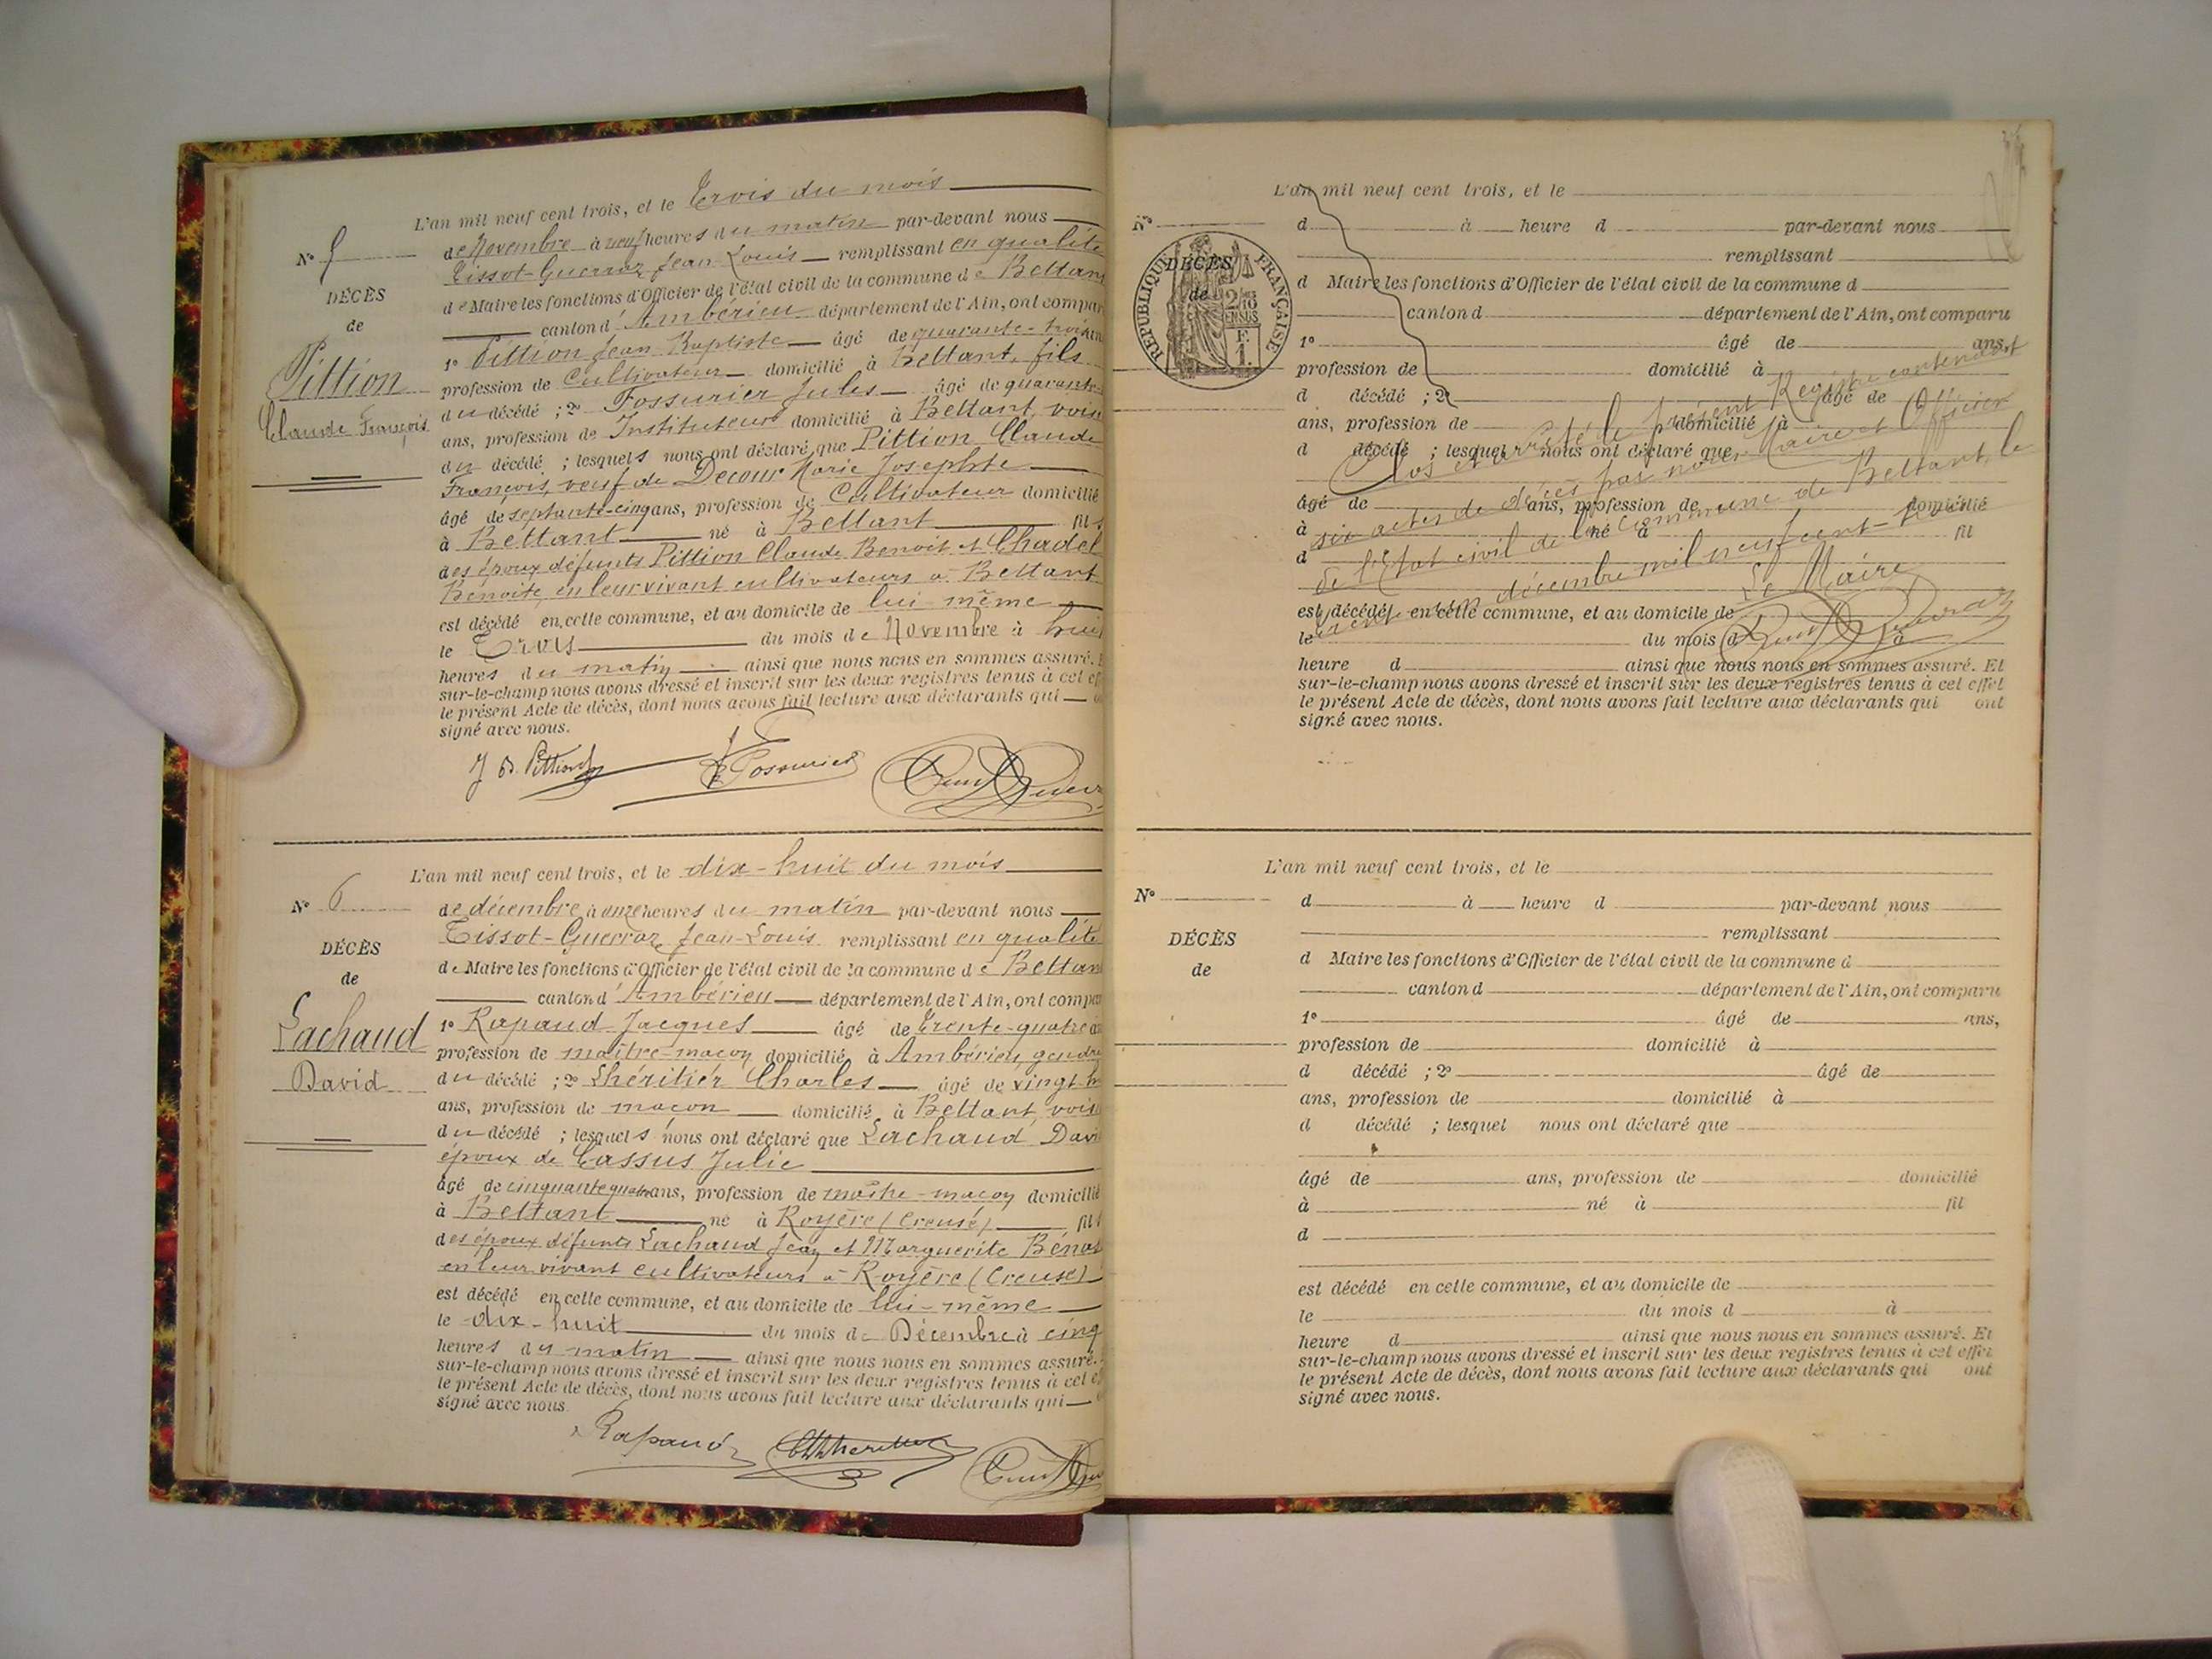 L'an mil neuf cent trois, et le Trois du mois
N° 5
de Novembre à neuf heures du matin par-devant nous
Tissot-Guerraz Jean-Louis remplissant en qualité
DÉCÈS
de Maire les fonctions d'Officier de l'état civil de la commune de Bettant
de
canton d'Ambérieu département de l'Ain, ont compar
1° Pittion Jean Baptiste âgé de quarante-trois ans
Pittion
profession de Cultivateur domicilié à Bettant, fils
Claude François
du décédé ; 2° Fossurier Jules âgé de quarante
ans, profession de Instituteur domicilié à Bettant, vois
du décédé ; lesquels nous ont déclaré que Pittion Claude
François, veuf de Decour Marie Josephte
âgé de septante-cinq ans, profession de Cultivateur domicilié
à Bettant né à Bettant fils
des époux défunts Pittion Claude Benoit et Chadel
Benoite, en leur vivant cultivateurs à Bettant
est décédé en cette commune, et au domicile de lui-même
le Trois du mois de Novembre à huit
heures du matin ainsi que nous nous en sommes assuré. E
sur-le-champ nous avons dressé et inscrit sur les deux registres tenus à cet ef
le présent Acte de décès, dont nous avons fait lecture aux déclarants qui
signé avec nous.
J B. Pittion
Fossurier
L'an mil neuf cent trois, et le dix-huit du mois
N° 6
de décembre à onze heures du matin par-devant nous
Tissot-Guerraz Jean-Louis remplissant en qualité
DÉCÈS
de Maire les fonctions d'Officier de l'état civil de la commune de Bettan
de
canton d'Ambérieu département de l'Ain, ont compa
Lachaud
1° Rapaud Jacques âgé de trente-quatre an
profession de maître-maçon domicilié à Ambérieu, gendre
David
du décédé ; 2° Lhéritier Charles âgé de vingt h
ans, profession de maçon domicilié à Bettant, vois
du décédé ; lesquels nous ont déclaré que Lachaud Davi
époux de Cassus Julie
âgé de cinquante quatre ans, profession de maître-maçon domicilié
à Bettant né à Royère (Creuse) fils
des époux défunts Lachaud Jean et Marguerite Bénas
en leur vivant cultivateurs à Royère (Creuse)
est décédé en cette commune, et au domicile de lui-même
le dix-huit du mois de Décembre à cinq
heures du matin ainsi que nous nous en sommes assuré.
sur-le-champ nous avons dressé et inscrit sur les deux registres tenus à cet e
le présent Acte de décès, dont nous avons fait lecture aux déclarants qui
signé avec nous.
Rapaud
L'an mil neuf cent trois, et le
N°
d à heure d par-devant nous
remplissant
RÉPUBLIQUE FRANÇAISE
DÉCÈS
de
2/10 EN SUS
1 F.
d Maire les fonctions d'Officier de l'état civil de la commune d
canton d département de l'Ain, ont comparu
1° âgé de ans,
profession de domicilié à
d décédé ; 2° âgé de
ans, profession de domicilié à
d décédé ; lesquel nous ont déclaré que
Clos et arrêté le présent Registre contenant
six actes de décès par nous Maire et Officier
de l'Etat civil de la commune de Bettant, le
trente un décembre mil neuf cent-trois
Le Maire,
âgé de ans, profession de domicilié
à né à fil
d
est décédé en cette commune, et au domicile de
le du mois d à
heure d ainsi que nous nous en sommes assuré. Et
sur-le-champ nous avons dressé et inscrit sur les deux registres tenus à cet effet
le présent Acte de décès, dont nous avons fait lecture aux déclarants qui ont
signé avec nous.
L'an mil neuf cent trois, et le
N°
d à heure d par-devant nous
remplissant
DÉCÈS
d Maire les fonctions d'Officier de l'état civil de la commune d
de
canton d département de l'Ain, ont comparu
1° âgé de ans,
profession de domicilié à
d décédé ; 2° âgé de
ans, profession de domicilié à
d décédé ; lesquel nous ont déclaré que
âgé de ans, profession de domicilié
à né à fil
d
est décédé en cette commune, et au domicile de
le du mois d à
heure d ainsi que nous nous en sommes assuré. Et
sur-le-champ nous avons dressé et inscrit sur les deux registres tenus à cet effet
le présent Acte de décès, dont nous avons fait lecture aux déclarants qui ont
signé avec nous.